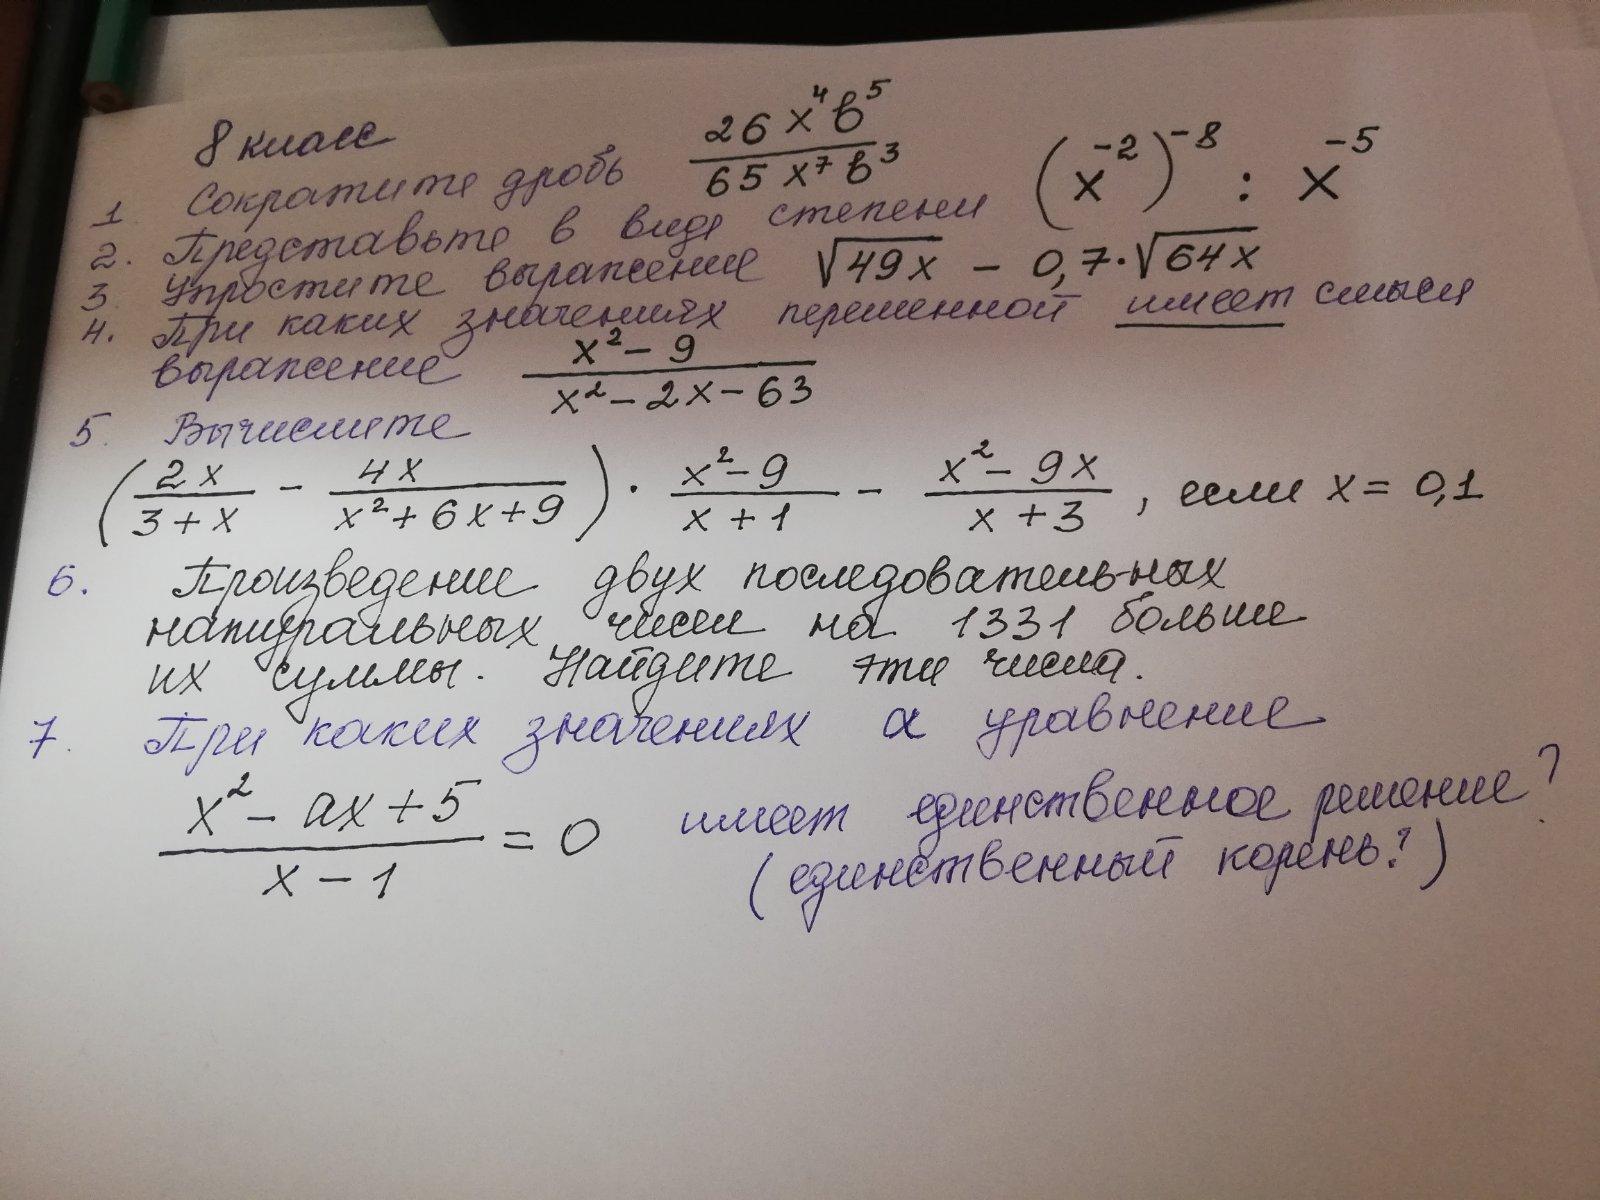 8 класс
1. Сократите дробь 26x⁴b⁵ / 65x⁷b³
2. Представьте в виде степени (x⁻²)⁻⁸ : x⁻⁵
3. Упростите выражение √49x - 0,7·√64x
4. При каких значениях переменной имеет смысл
выражение (x² - 9) / (x² - 2x - 63)
5. Вычислите
(2x / (3+x) - 4x / (x² + 6x + 9)) · (x² - 9) / (x + 1) - (x² - 9x) / (x + 3), если x = 0,1
6. Произведение двух последовательных
натуральных чисел на 1331 больше
их суммы. Найдите эти числа.
7. При каких значениях a уравнение
(x² - ax + 5) / (x - 1) = 0 имеет единственное решение?
(единственный корень?)